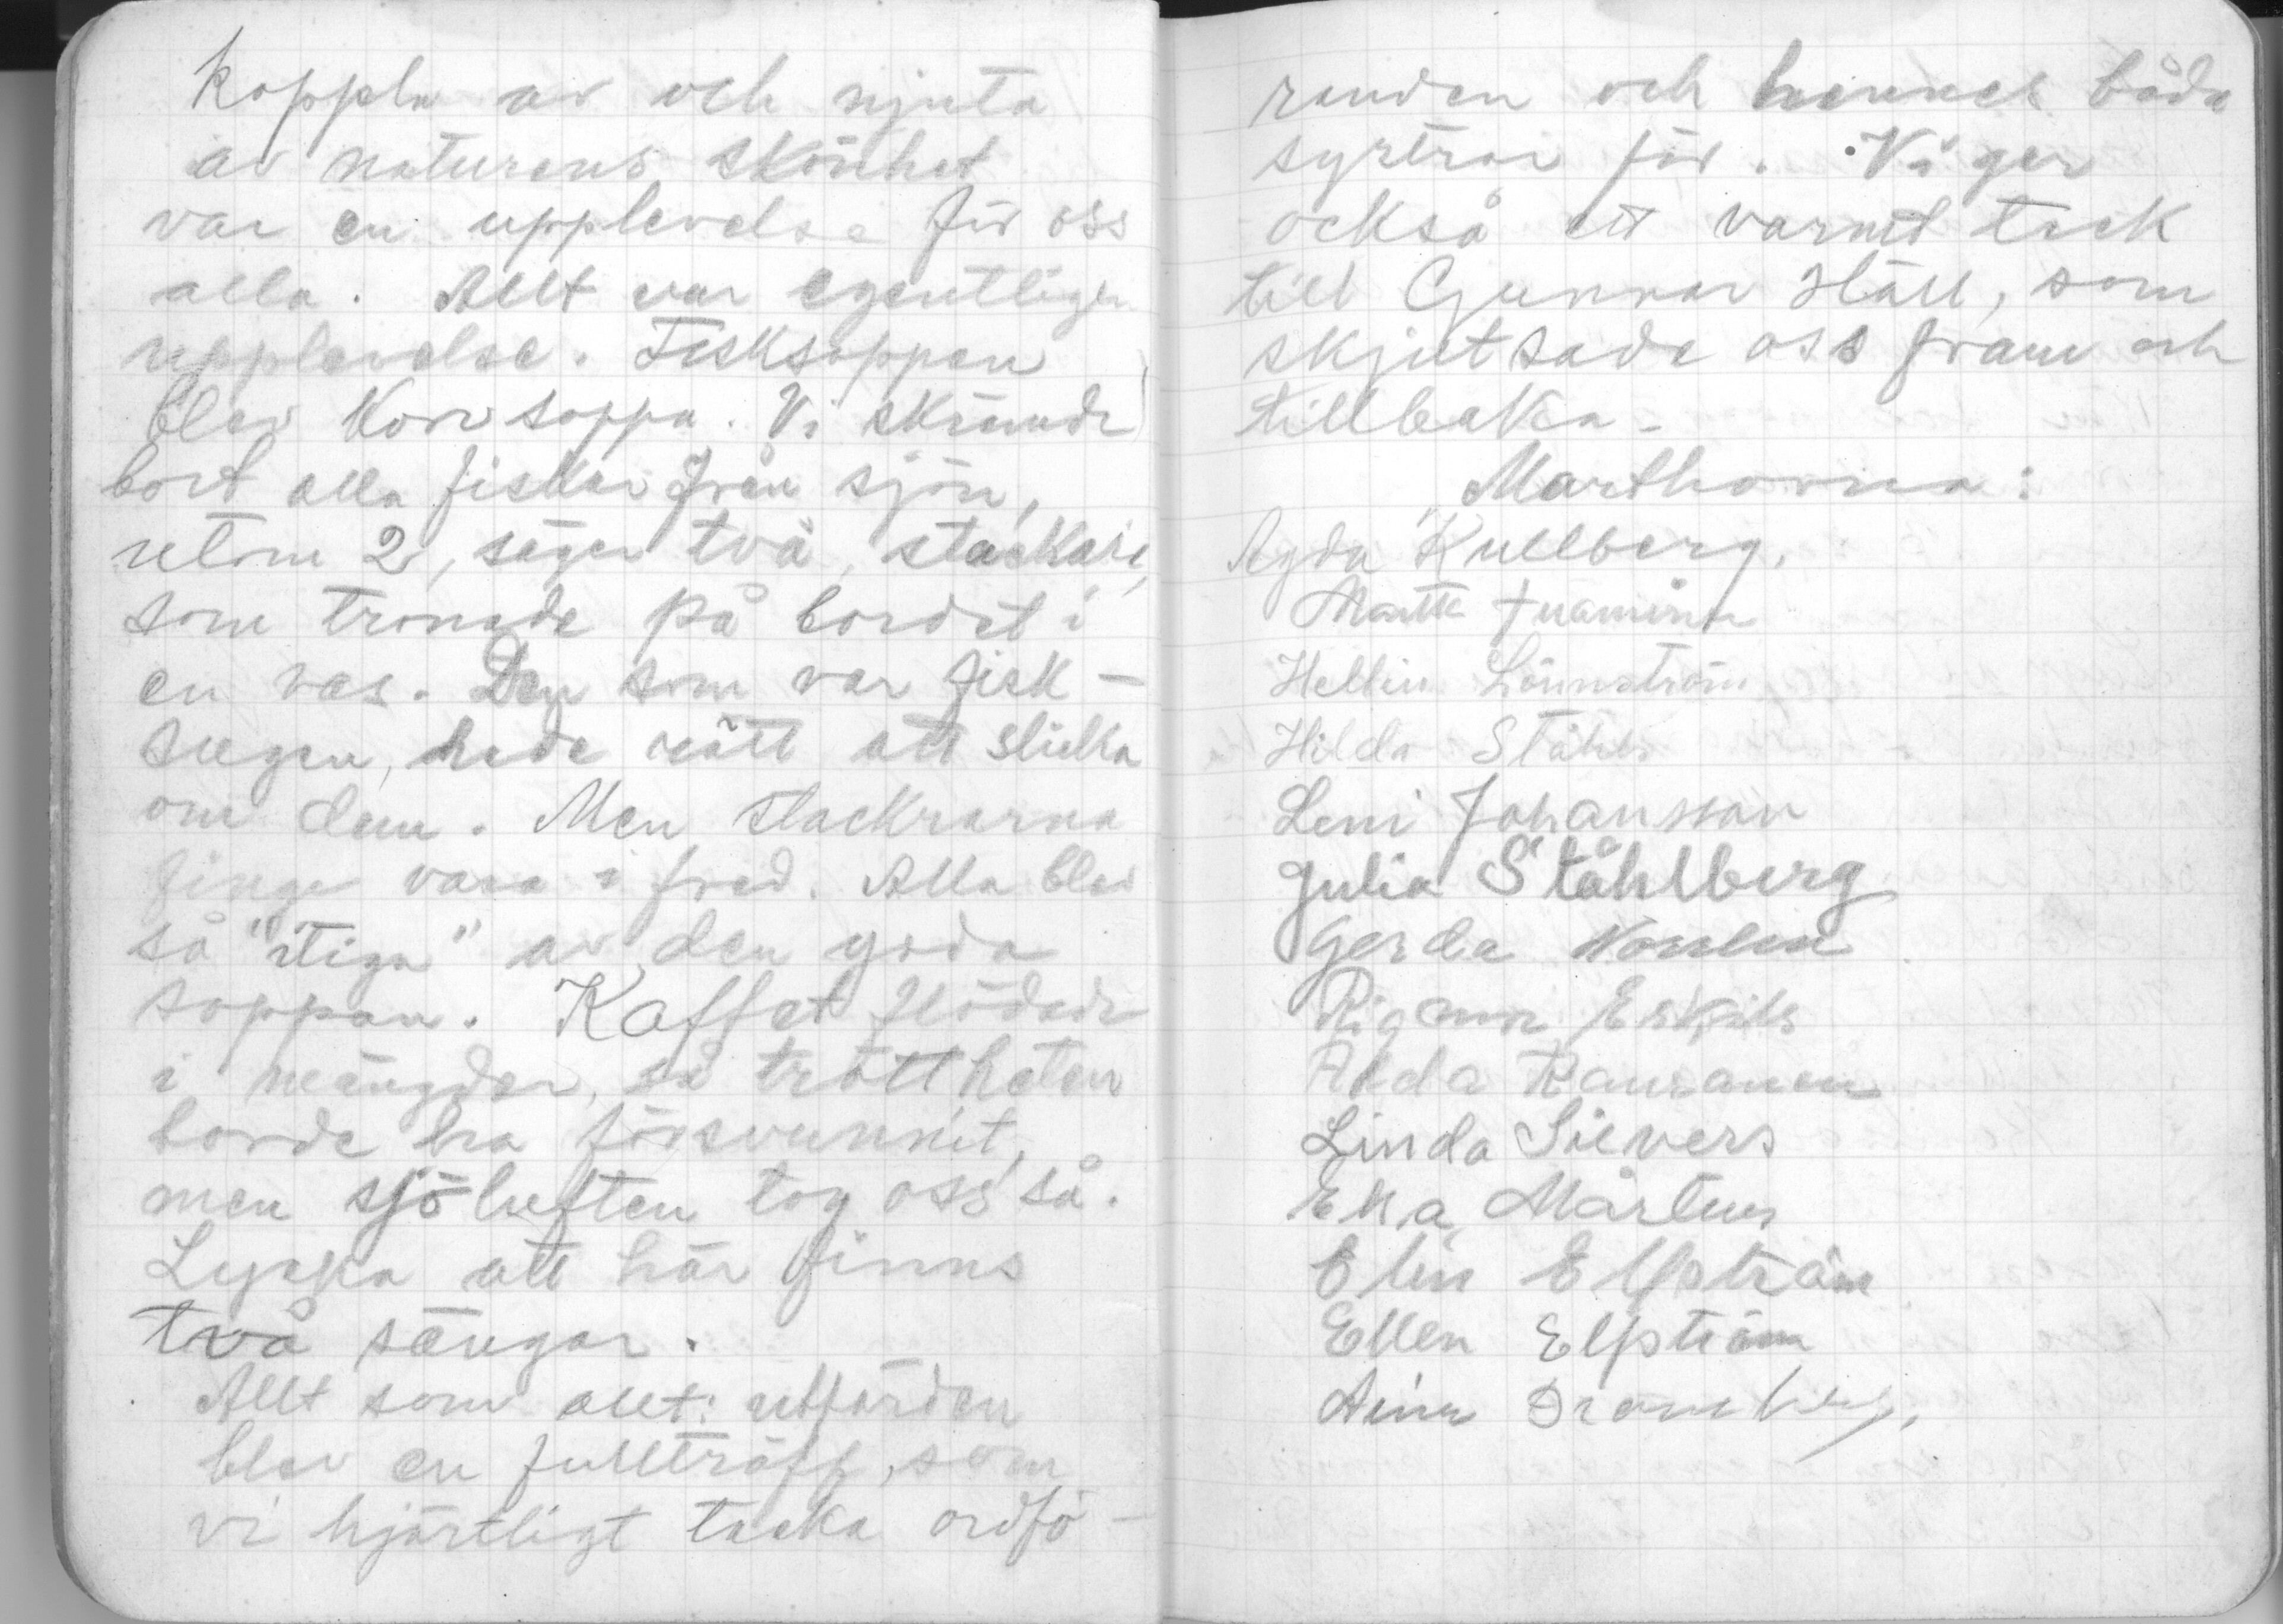 koppla av och njuta
av naturens skönhet
var en upplevelse för oss
alla. Allt var egentligen
upplevelse. Fisksoppan
blev korvsoppa. Vi skrämde
bort alla fiskar från sjön,
utom 2, säger två, stackare,
som tronade på bordet i
en vas. Den som var fisk-
sugen, hade rätt att slicka
om dem. Men stackrarna
finge vara i fred. Alla blev
så "stiga" av den goda
soppan. Kaffet flödade
i mängder, så tröttheten
borde ha försvunnit,
men sjöluften tog oss så.
Lycka att här finns
två sängar.
Allt som allt: utfärden
blev en fullträff, som
vi hjärtligt tacka ordfö-
randen och hennes båda
systrar för. Vi ger
också ett varmt tack
till Gunnar Häll, som
skjutsade oss fram och
tillbaka.
Marthorna:
Agda Kullberg.
Hellin Lönnström
Hilda Ståhls
Leni Johansson
Julia Ståhlberg
Gerda
Rigmor Eskils
Alda
Linda Sievers
Elsa Mårtens
Elin Elfström
Ellen Elfström
Aina Dromberg.